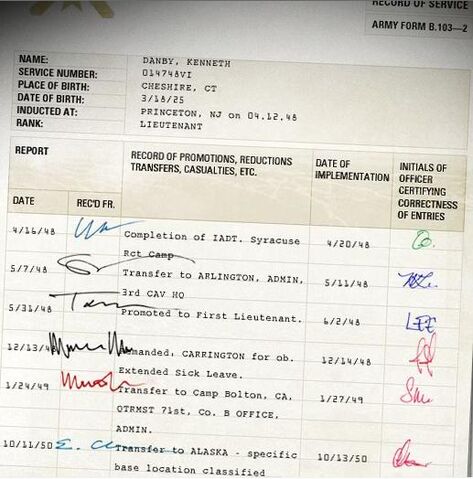 RECORD OF SERVICE
ARMY FORM B.103—2
NAME: DANBY, KENNETH
SERVICE NUMBER: 014748VI
PLACE OF BIRTH: CHESHIRE, CT
DATE OF BIRTH: 3/18/25
INDUCTED AT: PRINCETON, NJ on 04.12.48
RANK: LIEUTENANT
REPORT
RECORD OF PROMOTIONS, REDUCTIONS
TRANSFERS, CASUALTIES, ETC.
DATE OF
IMPLEMENTATION
INITIALS OF
OFFICER
CERTIFYING
CORRECTNESS
OF ENTRIES
DATE REC'D FR.
4/16/48 Completion of IADT. Syracuse 4/20/48
Rct Camp
5/7/48 Transfer to ARLINGTON, ADMIN, 5/11/48
3rd CAV HQ
5/31/48 Promoted to First Lieutenant. 6/2/48 LEE
12/13/48 CARRINGTON for ob. 12/14/48
Extended Sick Leave.
1/24/49 Transfer to Camp Bolton, CA, 1/27/49
QTRMST 71st, Co. B OFFICE,
ADMIN.
10/11/50 Transfer to ALASKA - specific 10/13/50
base location classified